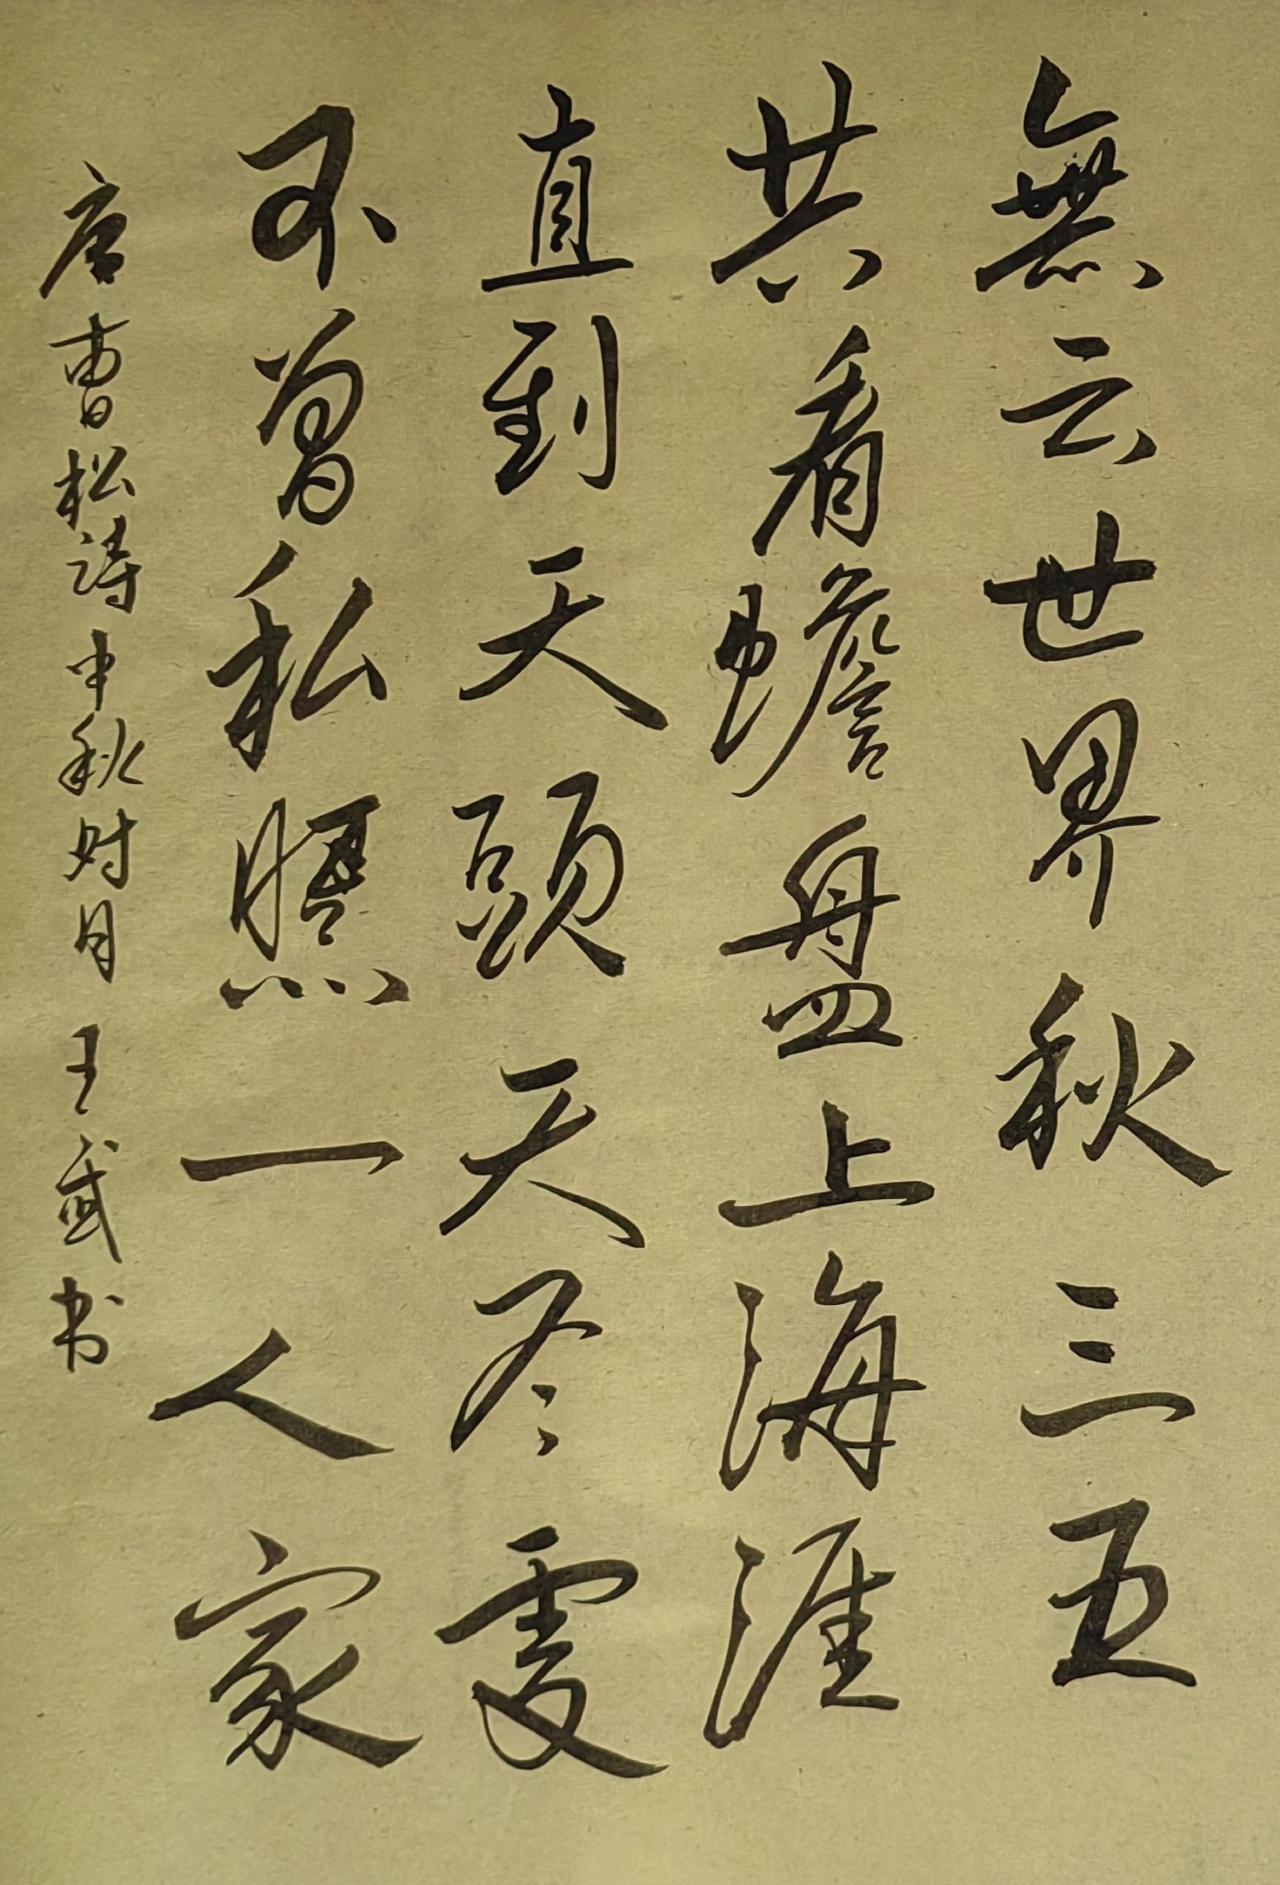 無云世界秋三五
共看蟾盘上海涯
直到天頭天尽處
不曾私照一人家
唐曹松詩中秋对月王武书